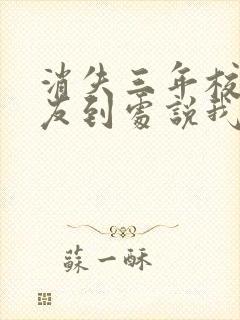 消失三年
友到處說我
蘇一酥